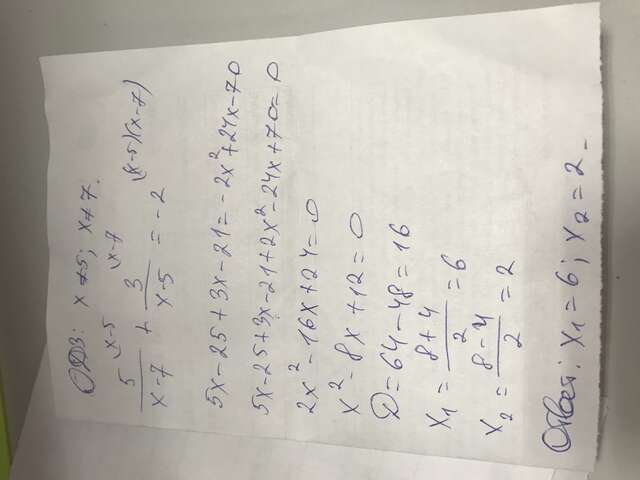 ОДЗ: x ≠ 5; x ≠ 7.
5/(x-7) \x-5 + 3/(x-5) \x-7 = -2 \(x-5)(x-7)
5x-25+3x-21=-2x²+24x-70
5x-25+3x-21+2x²-24x+70=0
2x²-16x+24=0
x²-8x+12=0
D=64-48=16
x₁ = (8+4)/2 = 6
x₂ = (8-4)/2 = 2
Ответ: x₁=6; x₂=2.